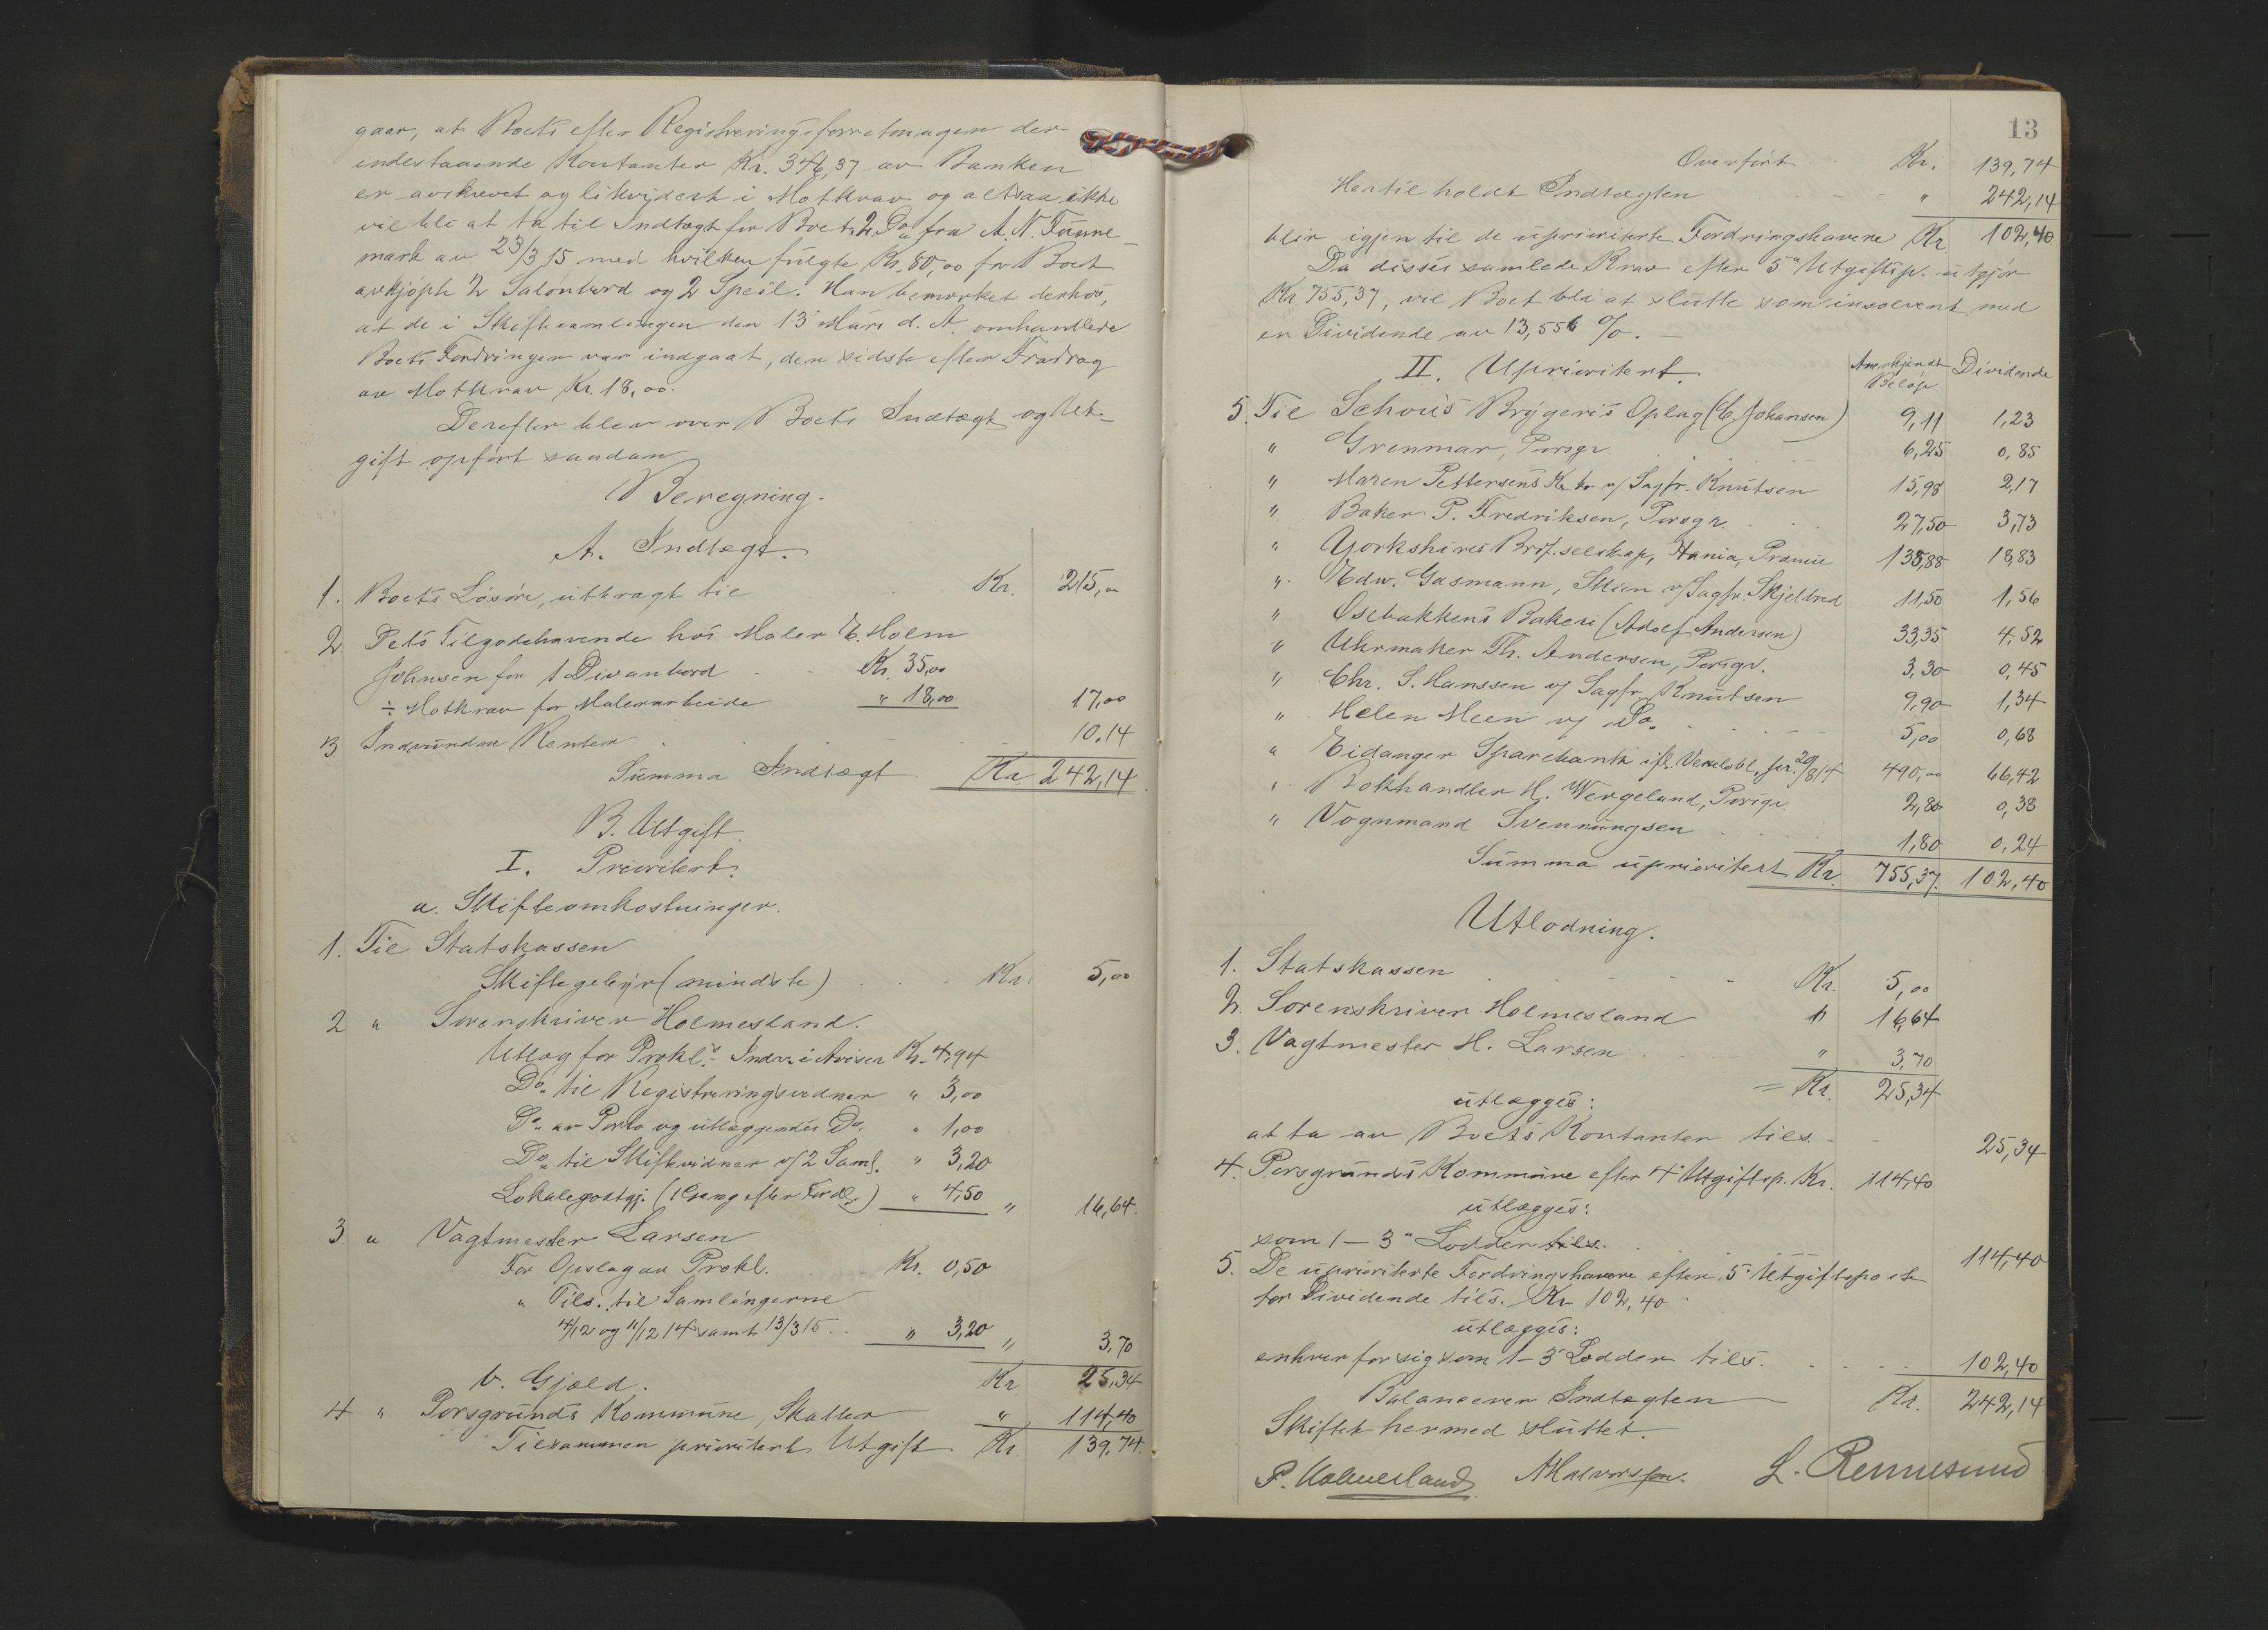 gaar, at Boets efter Registreringsforretningen der
indestaaende Kontanter Kr. 346,37 av Banken
er avskrevet og likvidert i Motkrav og altsaa ikke
vil bli at ta til Indtægt for Boet. 2. Do fra A. N.
mark av 23/3 15 med hvilken fulgte Kr. 80,00 for Boet
avkjøpte 2 Salonbord og 2 Speil. Han bemerket derhos,
at de i Skiftesamlingen den 13' Mars d. A. omhandlede
Boets Fordringer var indgaat, den sidste efter Fradrag
av Motkrav Kr. 18,00.
Derefter blev over Boets Indtægt og Ut-
gift opført saadan
Beregning.
A. Indtægt.
1. Boets Løsøre, utbragt til Kr. 215,"
2 Dets Tilgodehavende hos Maler E. Holm
Johnsen for 1 Divanbord Kr. 35,00
÷ Motkrav for Malerarbeide " 18,00 17,00
3 Indvundne Renter 10.14
Summa Indtægt Kr. 242,14
B. Utgift.
I. Prioritert.
a. Skifteomkostninger.
1. Til Statskassen
Skiftegebyr (mindste) Kr. 5,00
2 " Sorenskriver Holmesland.
Utlag for Prokl.s Indr. i Aviser Kr. 4,94
Do. til Registreringsvidner " 3,00
Do. av Porto og utlæggendes Do. " 1,00
Do. til Skiftevidner v/ 2 Saml. " 3,20
Lokalegodtgj. (1 Gang efter Fordl.) " 4,50 " 16,64.
3. " Vagtmester Larsen
For Opslag av Prokl. Kr. 0,50
" Tils. til Samlingerne
4/12 og 11/12 14 samt 13/3 15.. " 3,20 " 3,70
Kr. 25,34
b. Gjæld.
4 " Porsgrunds Kommune, Skatter " 114,40
Tilsammen prioritert Utgift Kr. 139,74.
13
Overført Kr. 139,74
Hertil holdt Indtægten " 242,14
blir igjen til de uprioriterte Fordringshavere Kr 102,40.
Da disses samlede Krav efter 5" Utgiftsp. utgjør
Kr. 755,37, vil Boet bli at slutte som insolvent med
en Dividende av 13,556 %. —
II. Uprioritert. Anerkjendt Beløp Dividende
5. Til Schou's Bryggeri's Oplag (C. Johansen) 9,11 1,23
" Grenmar, Porsgr. 6,25 0,85
" Maren Pettersens v/ Sagfr. Knutsen 15,98 2,17
" Baker P. Fredriksen, Porsgr. 27,50 3,73
" Yorkshires Brdf.selskap, Kania, Præmie 138,88 18,83
" Edw. Gasmann, Skien v/ Sagfr. Skjelbred 11,50 1,56
" Osebakkens Bakeri (Adolf Andersen) 33,35 4,52
" Uhrmaker Th. Andersen, Porsgr. 3,30 0,45
" Chr. S. Hanssen v/ Sagfr. Knutsen 9,90 1,34
" Helen Meen v/ Do. 5,00 0,68
" Eidanger Sparebank ifl. Vexelobl. for. 29/8 14 490,00 66,42
" Bokhandler H. Wergeland, Porsgr. 2,80 0,38
" Vognmand Svennungsen 1,80 0,24
Summa uprioritert Kr. 755,37. 102,40
Utlodning.
1. Statskassen Kr. 5,00
2. Sorenskriver Holmesland " 16,64
3. Vagtmester H. Larsen " 3,70
= Kr. 25,34
utlægges:
at ta av Boets Kontanter tils. 25,34
4. Porsgrunds Kommune efter 4' Utgiftsp. Kr. 114,40
utlægges:
som 1 - 3" Lodder tils. 114,40
5. De uprioriterte Fordringshavere efter 5' Utgiftspost
for Dividende tils. Kr. 102,40
utlægges:
enhver for sig som 1 - 3' Lodder tils. 102,40
Balancerer Indtægten Kr. 242,14
Skiftet hermed sluttet.
P. Holmesland A Halvorsen. L. Rennesund